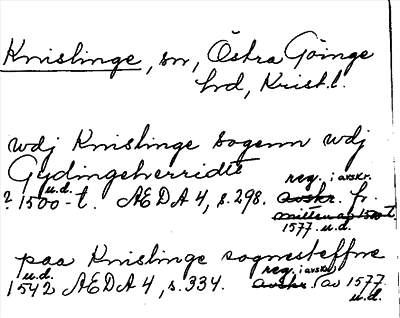 Knislinge, sn, Östra Göinge
hrd, Krist.l.
wdj Knislinge sogenn wdj
Gydingeherridtt
reg. i avskr.
? 1500-t. u.d. ÆDA 4, s. 298. avskr. fr.
mitten av 1500-t.
1577. u.d.
paa Knislinge sognesteffne
u.d. reg. i avskr.
1542 ÆDA 4, s. 334. avskr. av 1577
u.d.